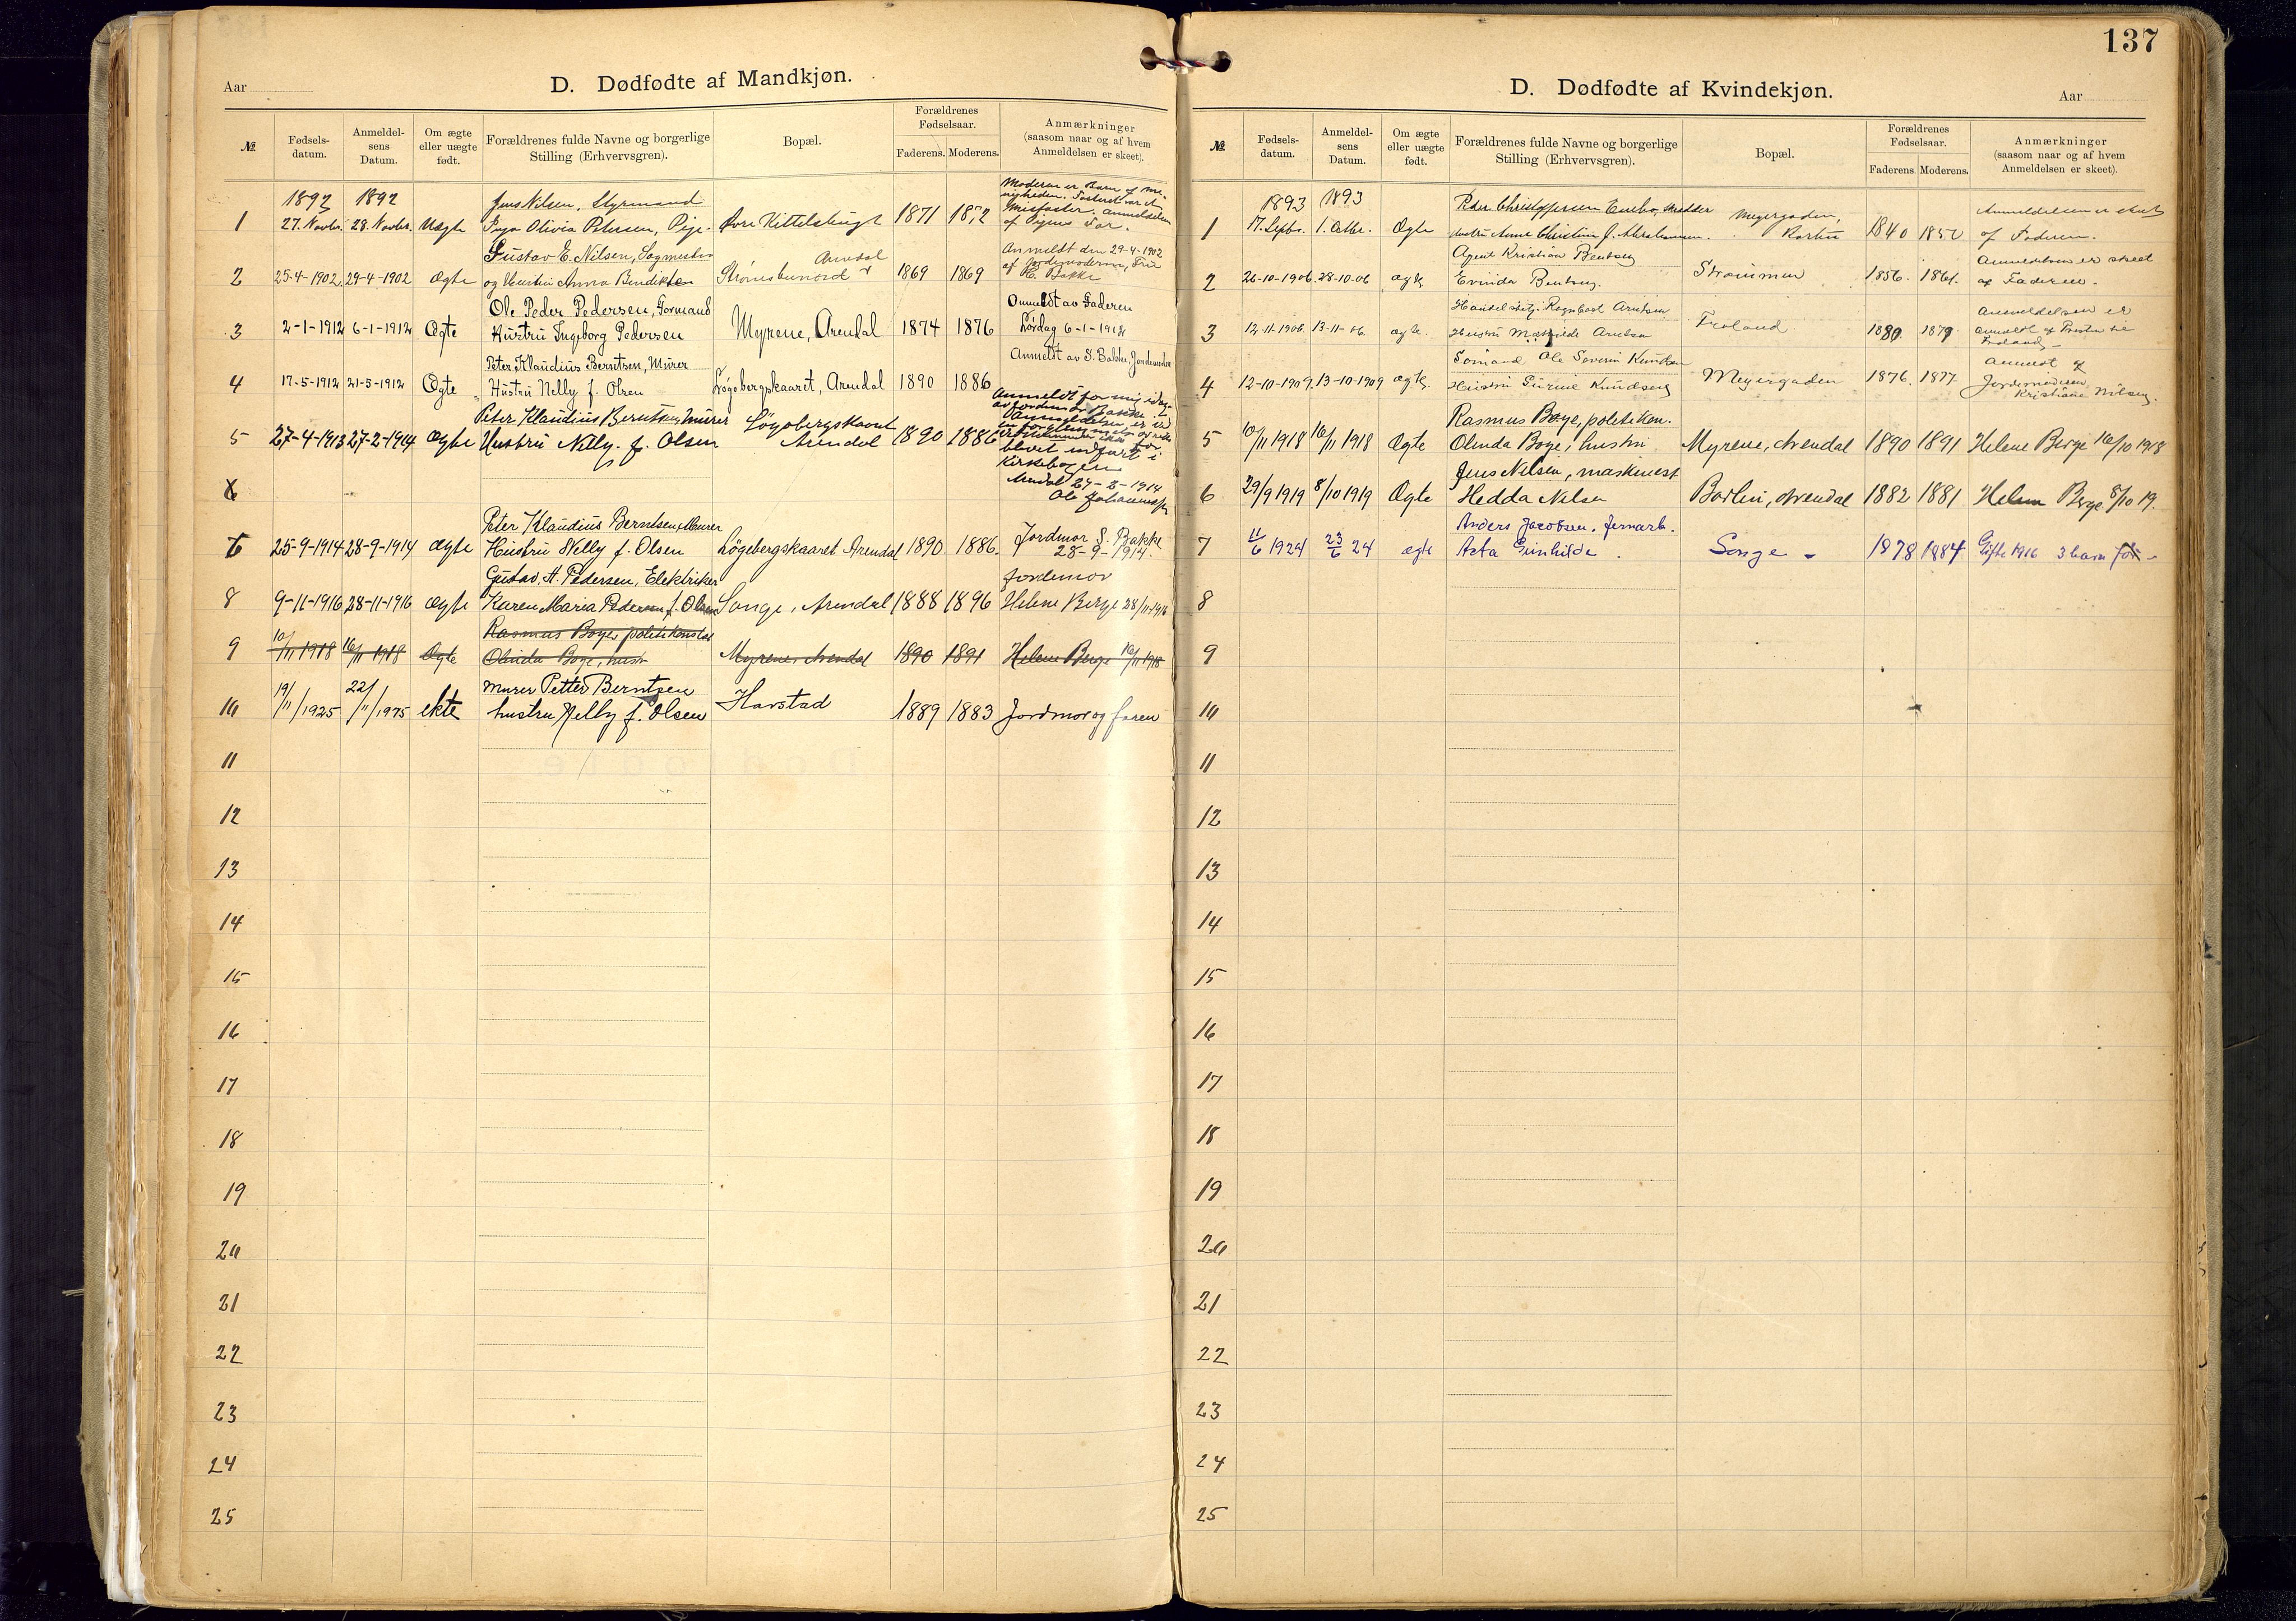 137
Aar
D. Dødfødte af Mandkjøn.
№.
Fødsels-
datum.
Anmeldel-
sens
Datum.
Om ægte
eller uægte
født.
Forældrenes fulde Navne og borgerlige
Stilling (Erhvervsgren).
Bopæl.
Forældrenes
Fødselsaar.
Faderens. Moderens.
Anmærkninger
(saasom naar og af hvem
Anmeldelsen er skeet).
1892 1892 Jens Nilsen, Styrmand
1 27. Novbr. 28. Novbr. Uægte Inga Olivia Petersen, Pige. Øvre Kittelsbugt 1871 1872
af Pigens Far.
Gustav E. Nilsen, Sagmester Arendal Anmeldt den 29-4-1902
2 25-4-1902 29-4-1902 Ægte og Hustru Anna Bendiktsen Strømsbunord 1869 1869 af Jordemoderen, Fru Bakke
Ole Peder Pedersen, Formand Anmeldt av Faderen
3 2-1-1912 6-1-1912 Ægte Hustru Ingeborg Pedersen Myrene, Arendal 1874 1876 Lördag 6-1-1912
Peter Klaudius Berntsen, Murer Anmeldt av S. Bakke, Jordemoder
4 17-5-1912 21-5-1912 Ægte Hustru Nelly f. Olsen Lögebergskaaret, Arendal 1890 1886
Peter Klaudius Berntsen, Murer Lögebergskaaret
5 27-4-1913 27-2-1914 Ægte Hustru Nelly f. Olsen Arendal 1890 1886
Anmeldt for mig idag
av Jordmor Bakke.
Anmeldelsen er ved
blevet indført i
Kirkebogen
Arendal 27-2-1914
Ole Johannessen
6
Peter Klaudius Berntsen, Murer
25-9-1914 28-9-1914 Ægte Hustru Nelly f. Olsen Lögebergskaaret Arendal 1890. 1886. Jordmor S. Bakke
28-9-1914.
Gustav A. Pedersen, Elektriker Jordemor
8 9-11-1916 28-11-1916 Ægte Karen Maria Pedersen f. Olsen Songe, Arendal 1888 1896 Helene Berge 28/11-1916
Rasmus Boye, politikonstabel
9 10/11 1918 16/11 1918 Ægte Olinda Boye, hustr. Myrene, Arendal 1890 1891 Helene Berge 16/11 1918
Murer Petter Berntsen
10 19/11/1925 22/11/1925 ekte hustru Nelly f. Olsen Harstad 1889 1883 Jordmor og faren
11
12
13
14
15
16
17
18
19
20
21
22
23
24
25
D. Dødfødte af Kvindekjøn.
Aar
№.
Fødsels-
datum.
Anmeldel-
sens
Datum.
Om ægte
eller uægte
født.
Forældrenes fulde Navne og borgerlige
Stilling (Erhvervsgren).
Bopæl.
Forældrenes
Fødselsaar.
Faderens. Moderens.
Anmærkninger
(saasom naar og af hvem
Anmeldelsen er skeet).
1893 1893 Peder Christophersen Enebo, Snedker Meyergaden, Anmeldelsen er skeet
1 17. Septbr. 1. Octbr. Ægte Hustru Anne Christine f. Abrahamsen. 1840 1850 af Faderen.
Agent Kristian Bentsen Anmeldelsen er skeet
2 26-10-1906 28-10-06 ægte Evinda Bentsen. Strømmen 1856. 1861. af Faderen.
Arntsen Anmeldelsen er
3 12-11-1906 13-11-06 ægte. Hustru Mathilde Arntsen Froland 1880. 1879 anmeldt af Presten til
Froland
Sømand Ole Severin Knudsen Anmeldt af
4 12-10-1909. 13-10-1909 ægte. Hustru Gurine Knudsen Meyergaden 1876. 1877 Jordemoderen
Kristiane Nilsen.
Rasmus Boye, politikon.
5 10/11 1918 16/11 1918 Ægte Olinda Boye, hustru Myrene, Arendal 1890 1891 Helene Berge 16/10 1918
Jens Nilsen, maskinist
6 29/9 1919 8/10 1919 Ægte Hedda Nilsen Barlin, Arendal 1882 1881 Helene Berge 8/10 19.
Anders Jacobsen, jernarb.
7 11/6 1924 23/6 24 ægte Asta Gunhilde. Songe - 1878 1884 Gifte 1916 3 barn før -
8
9
10
11
12
13
14
15
16
17
18
19
20
21
22
23
24
25